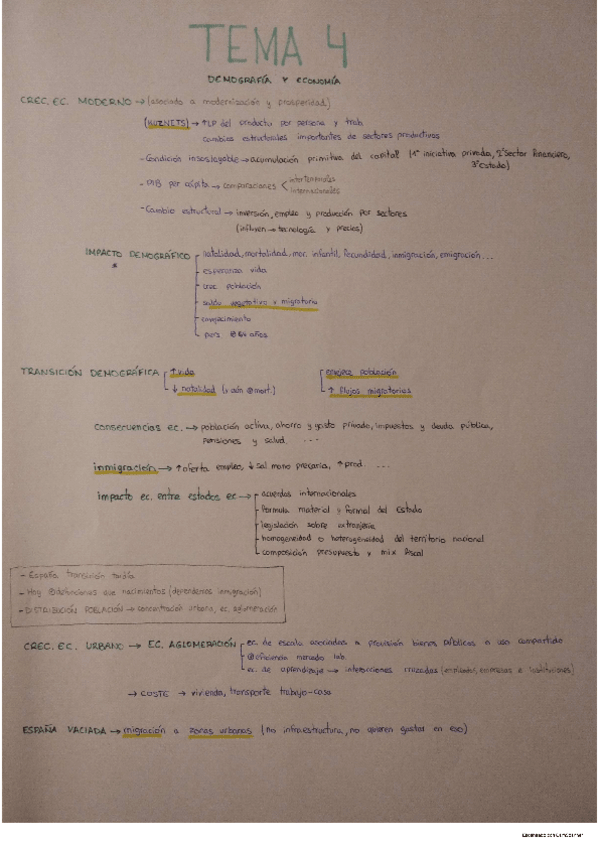 TEMA 4
DEMOGRAFÍA Y ECONOMÍA
CREC. EC. MODERNO → (asociado a modernización y prosperidad)
(KUZNETS) → ↑LP del producto por persona y trab.
cambios estructurales importantes de sectores productivos
- Condición insoslayable → acumulación primitiva del capital (1º iniciativa privada, 2º Sector financiero,
3º Estado)
- PIB per cápita → comparaciones < intertemporales
internacionales
- Cambio estructural → inversión, empleo y producción por sectores
(influyen → tecnología y precios)
IMPACTO DEMOGRÁFICO → natalidad, mortalidad, mor. infantil, fecundidad, inmigración, emigración...
- esperanza vida
- crec. población
- saldo vegetativo y migratorio
- envejecimiento
TRANSICIÓN DEMOGRÁFICA ↑ vida
↓ natalidad
envejez población
↑ flujos migratorios
consecuencias ec. → población activa, ahorro y gasto privado, impuestos y deuda pública,
pensiones y salud. ...
inmigración → ↑ oferta empleo, ↓ sal mano precaria, ↑ prod. ...
impacto ec. entre estados ec → acuerdos internacionales
- fórmula material y formal del Estado
- legislación sobre extranjería
- homogeneidad o heterogeneidad del territorio nacional
- composición presupuesto y mix fiscal
- España transición tardía
- Hay defunciones que nacimientos (dependemos inmigración)
- DISTRIBUCIÓN POBLACIÓN → concentración urbana, ec. aglomeración
CREC. EC. URBANO → EC. AGLOMERACIÓN ec. de escala asociadas a provisión bienes públicos a uso compartido
eficiencia mercado lab.
ec. de aprendizaje → interacciones cruzadas (empleados, empresas e instituciones)
→ COSTE → vivienda, transporte trabajo-casa
ESPAÑA VACIADA → migración a zonas urbanas (no infraestructura, no quieren gastar en eso)